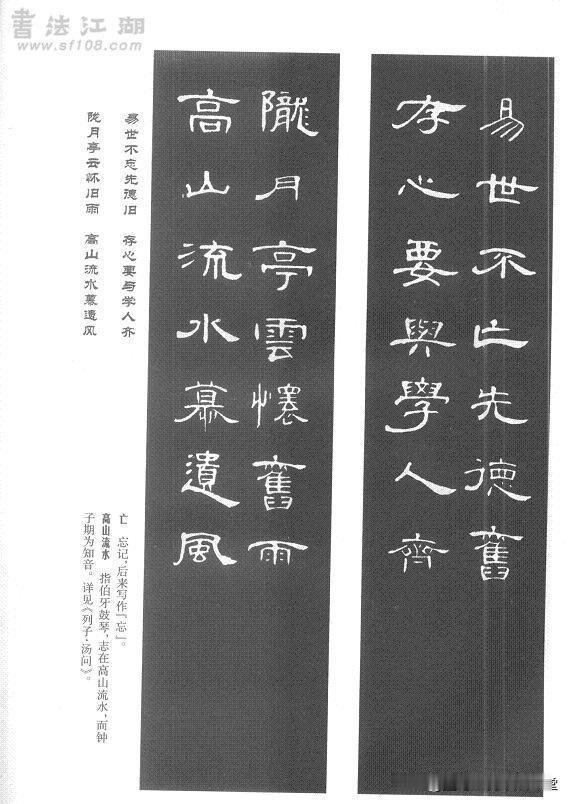 書法江湖
www.sf108.com
易世不亡先德舊
存心要與學人齊
隴月亭雲懷舊雨
高山流水慕遺風
易世不忘先德旧 存心要与学人齐
陇月亭云怀旧雨 高山流水慕遗风
亡 忘记,后来写作「忘」。
高山流水 指伯牙鼓琴,志在高山流水,而钟
子期为知音。详见《列子·汤问》。